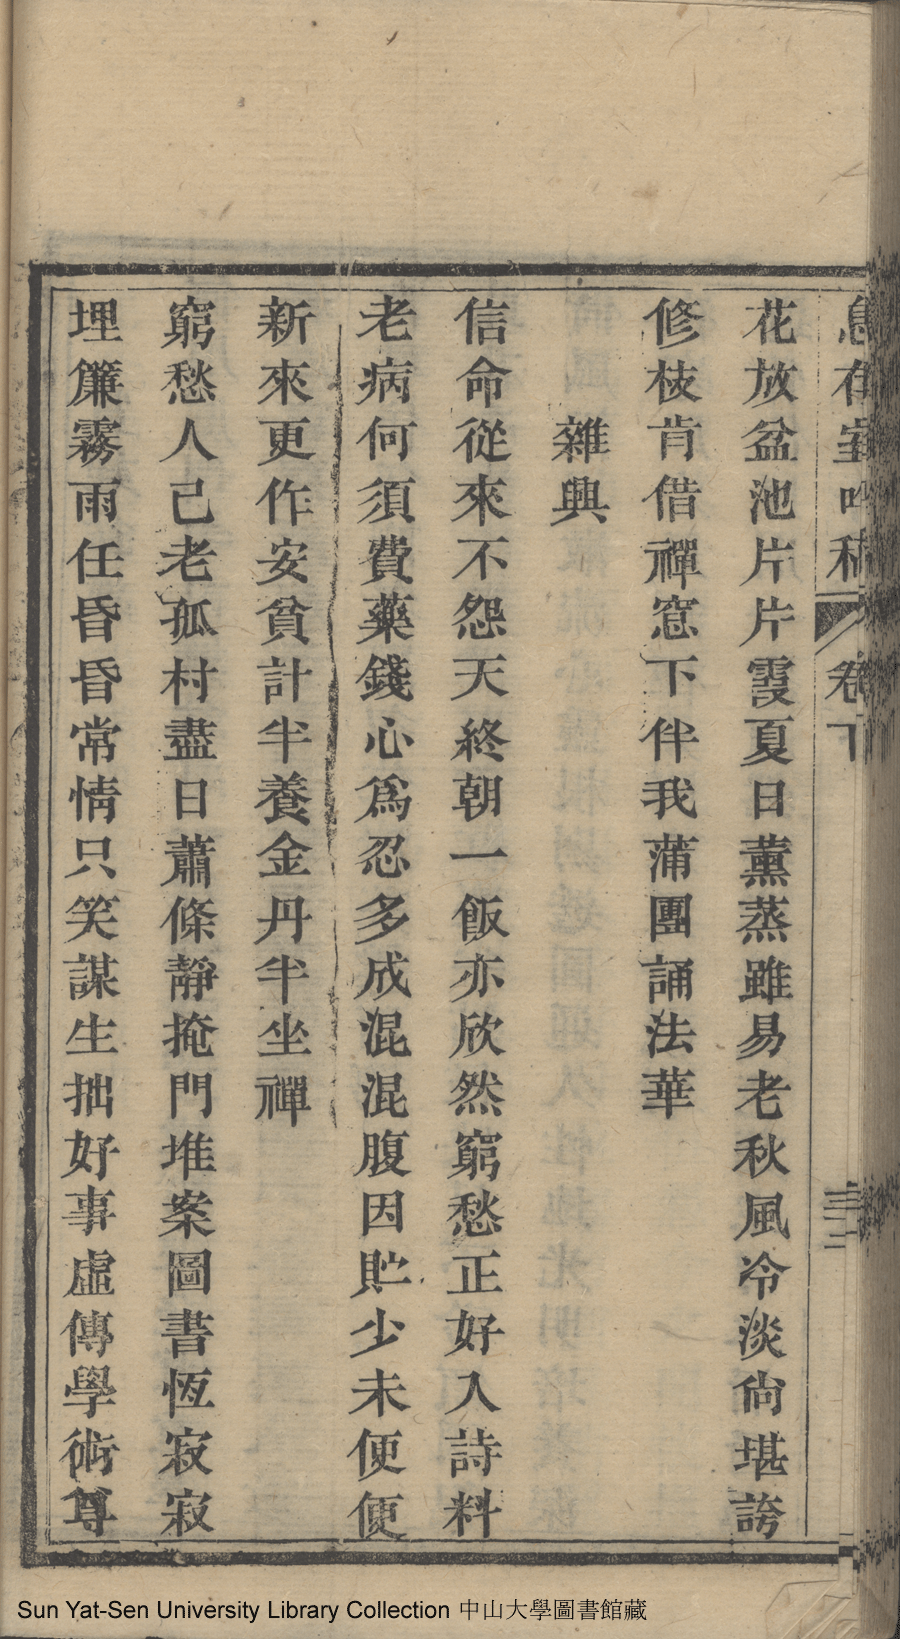 息存室吟稿 卷下 三二
花放盆池片片霞夏日薰蒸雖易老秋風冷淡尙堪誇
修枝肯借禪窓下伴我蒲團誦法華
雜興
信命從來不怨天終朝一飯亦欣然窮愁正好入詩料
老病何須費藥錢心爲忍多成混混腹因貯少未便便
新來更作安貧計半養金丹半坐禪
窮愁人已老孤村盡日蕭條靜掩門堆案圖書恆寂寂
埋簾霧雨任昏昏常情只笑謀生拙好事虛傳學術尊
Sun Yat-Sen University Library Collection 中山大學圖書館藏